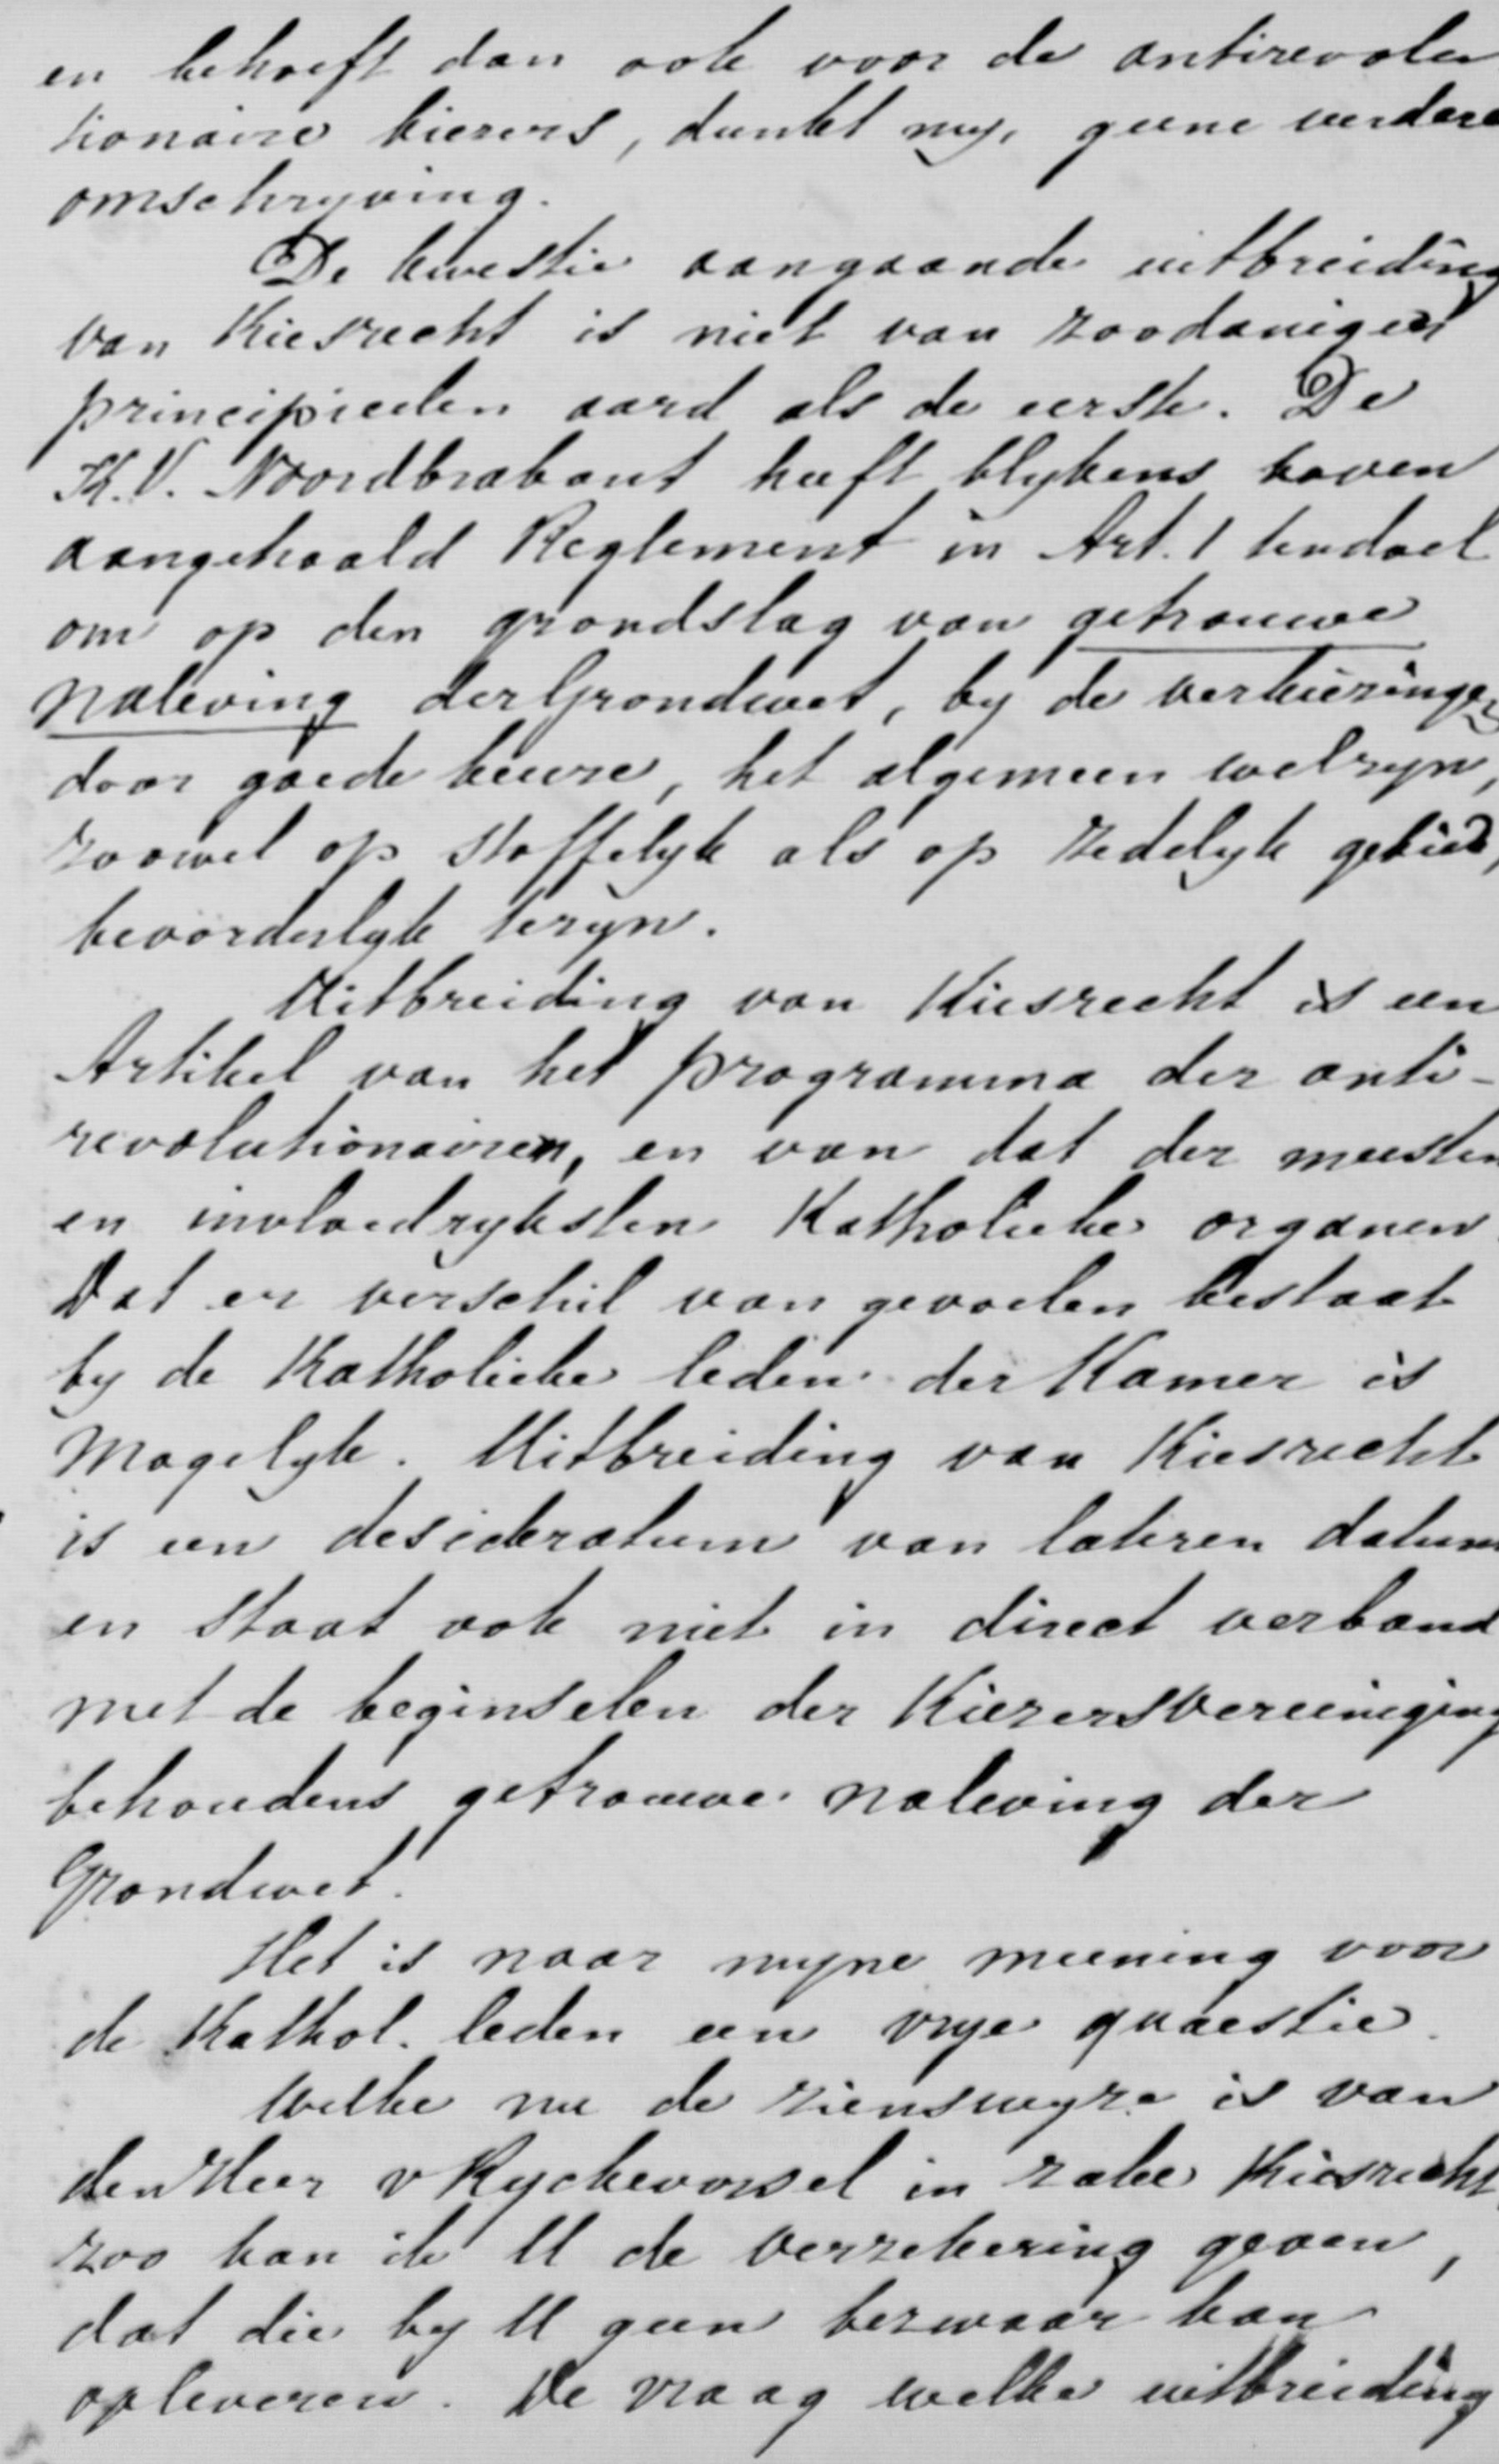 en behoeft dan ook voor de antirevolu
tionaire kiezers, dunkt my, geene verdere
omschryving.
De kwestie aangaande uitbreiding
van Kiesrecht is niet van zoodanigen
principieelen aard als de eerste. De
K.V. Noordbrabant heeft blykens boven
aangehaald Reglement in Art. 1 tendoel
om op den grondslag van getrouwe
naleving der Grondwet, by de verkiezingen
door goede keuze, het algemeen welzyn,
zoowel op stoffelyk als op zedelyk gebied,
bevorderlyk tezyn.
Uitbreiding van Kiesrecht is een
Artikel van het programma der anti-
revolutionairen, en van dat der meesten
en invloedryksten Katholieke organen
Dat er verschil van gevoelen bestaat
by de Katholieke leden der Kamer is
Mogelyk. Uitbreiding van Kiesrecht
is een desideratum van lateren datum
en staat ook niet in direct verband
met de beginselen der Kiezersvereeniging
behoudens getrouwe naleving der
Grondwet.
Het is naar myne meening voor
de Kathol. leden een vrye quaestie.
Welke nu de zienswyze is van
den Heer v Ryckevorsel in zake Kiesrecht,
zoo kan ik U de verzekering geven,
dat die by U geen bezwaar kan
opleveren. De vraag welke uitbreiding